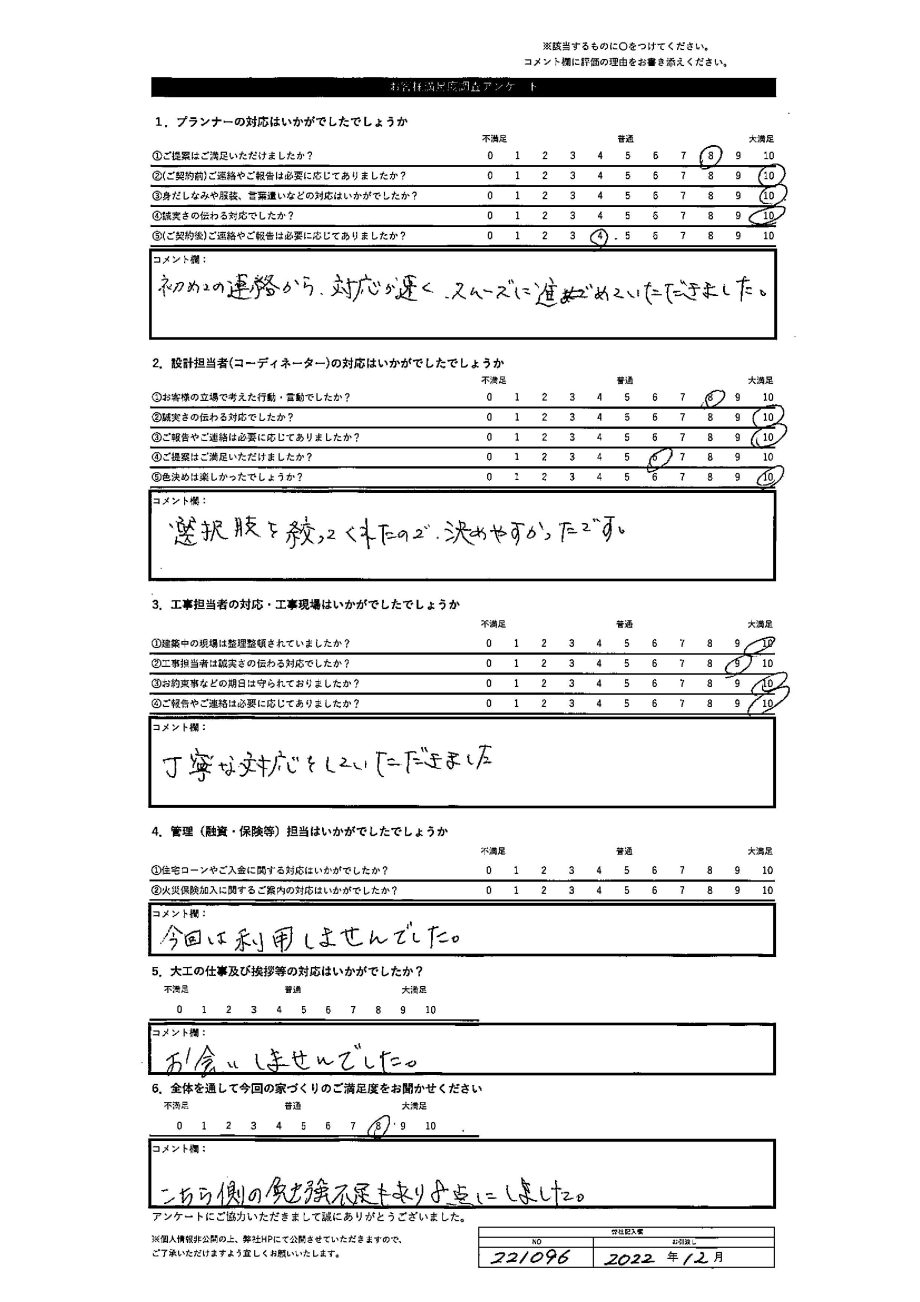 ※該当するものに〇をつけてください。
コメント欄に評価の理由をお書き添えください。
お客様満足度調査アンケート
1．プランナーの対応はいかがでしたでしょうか
不満足 普通 大満足
①ご提案はご満足いただけましたか？ 0 1 2 3 4 5 6 7 8 9 10
②(ご契約前)ご連絡やご報告は必要に応じてありましたか？ 0 1 2 3 4 5 6 7 8 9 10
③身だしなみや服装、言葉遣いなどの対応はいかがでしたか？ 0 1 2 3 4 5 6 7 8 9 10
④誠実さの伝わる対応でしたか？ 0 1 2 3 4 5 6 7 8 9 10
⑤(ご契約後)ご連絡やご報告は必要に応じてありましたか？ 0 1 2 3 4 5 6 7 8 9 10
コメント欄：
初めての連絡から、対応が速く、スムーズに進めていただきました。
2．設計担当者(コーディネーター)の対応はいかがでしたでしょうか
不満足 普通 大満足
①お客様の立場で考えた行動・言動でしたか？ 0 1 2 3 4 5 6 7 8 9 10
②誠実さの伝わる対応でしたか？ 0 1 2 3 4 5 6 7 8 9 10
③ご報告やご連絡は必要に応じてありましたか？ 0 1 2 3 4 5 6 7 8 9 10
④ご提案はご満足いただけましたか？ 0 1 2 3 4 5 6 7 8 9 10
⑤色決めは楽しかったでしょうか？ 0 1 2 3 4 5 6 7 8 9 10
コメント欄：
選択肢を絞ってくれたので、決めやすかったです。
3．工事担当者の対応・工事現場はいかがでしたでしょうか
不満足 普通 大満足
①建築中の現場は整理整頓されていましたか？ 0 1 2 3 4 5 6 7 8 9 10
②工事担当者は誠実さの伝わる対応でしたか？ 0 1 2 3 4 5 6 7 8 9 10
③お約束事などの期日は守られておりましたか？ 0 1 2 3 4 5 6 7 8 9 10
④ご報告やご連絡は必要に応じてありましたか？ 0 1 2 3 4 5 6 7 8 9 10
コメント欄：
丁寧な対応をしていただきました
4．管理（融資・保険等）担当はいかがでしたでしょうか
不満足 普通 大満足
①住宅ローンやご入金に関する対応はいかがでしたか？ 0 1 2 3 4 5 6 7 8 9 10
②火災保険加入に関するご案内の対応はいかがでしたか？ 0 1 2 3 4 5 6 7 8 9 10
コメント欄：
今回は利用しませんでした。
5．大工の仕事及び挨拶等の対応はいかがでしたか？
不満足 普通 大満足
0 1 2 3 4 5 6 7 8 9 10
コメント欄：
お会いしませんでした。
6．全体を通して今回の家づくりのご満足度をお聞かせください
不満足 普通 大満足
0 1 2 3 4 5 6 7 8 9 10
コメント欄：
こちら側の勉強不足もあり8点にしました。
アンケートにご協力いただきまして誠にありがとうございました。
※個人情報非公開の上、弊社HPにて公開させていただきますので、
ご了承いただけますよう宜しくお願いいたします。
弊社記入欄
NO お引渡し
221096 2022 年 12 月